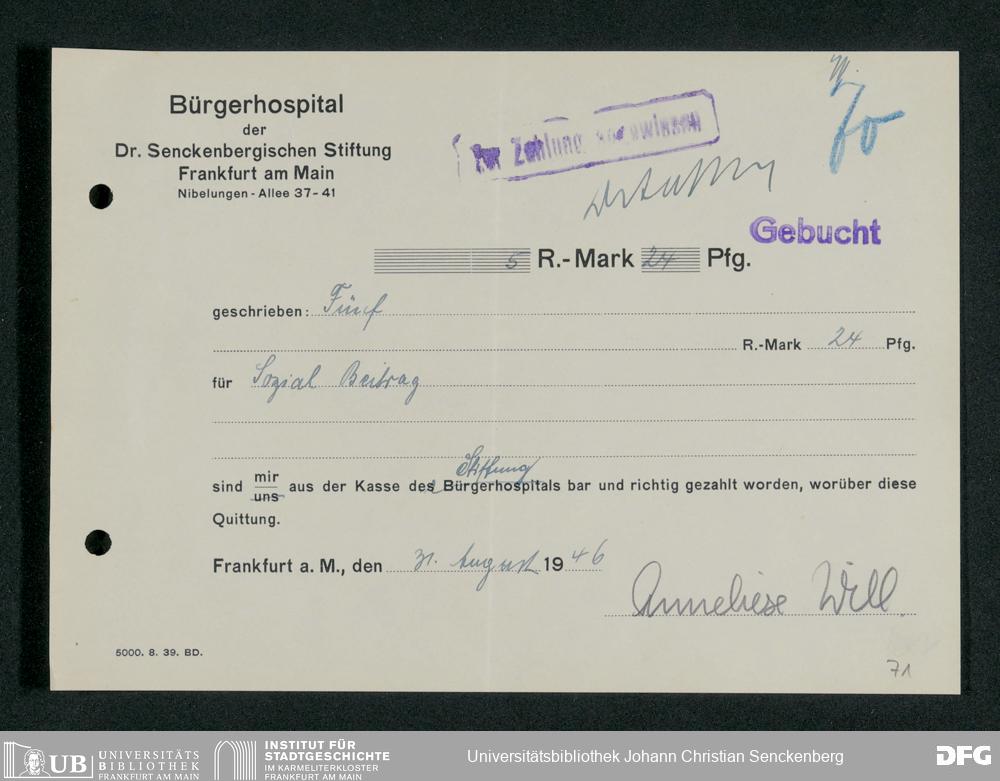 Bürgerhospital
der
Dr. Senckenbergischen Stiftung
Frankfurt am Main
Nibelungen-Allee 37-41
Zur Zahlung
70
Gebucht
5 R.-Mark 24 Pfg.
geschrieben: Fünf
R.-Mark 24 Pfg.
für Sozial Beitrag
Stiftung
sind mir uns aus der Kasse des Bürgerhospitals bar und richtig gezahlt worden, worüber diese
Quittung.
Frankfurt a. M., den 31. August 1946
Anneliese Will
5000. 8. 39. BD.
71
UB UNIVERSITÄTS
BIBLIOTHEK
FRANKFURT AM MAIN
INSTITUT FÜR
STADTGESCHICHTE
IM KARMELITERKLOSTER
FRANKFURT AM MAIN
Universitätsbibliothek Johann Christian Senckenberg
DFG